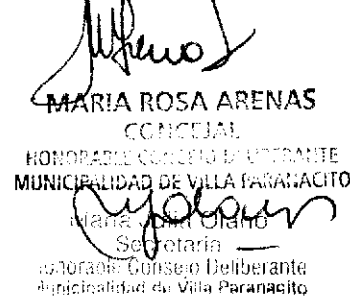 MARIA ROSA ARENAS
CONCEJAL
HONORABLE CONCEJO DELIBERANTE
MUNICIPALIDAD DE VILLA PARANACITO
Maria Julia Olano
Secretaria
Honorable Consejo Deliberante
Municipalidad de Villa Paranacito